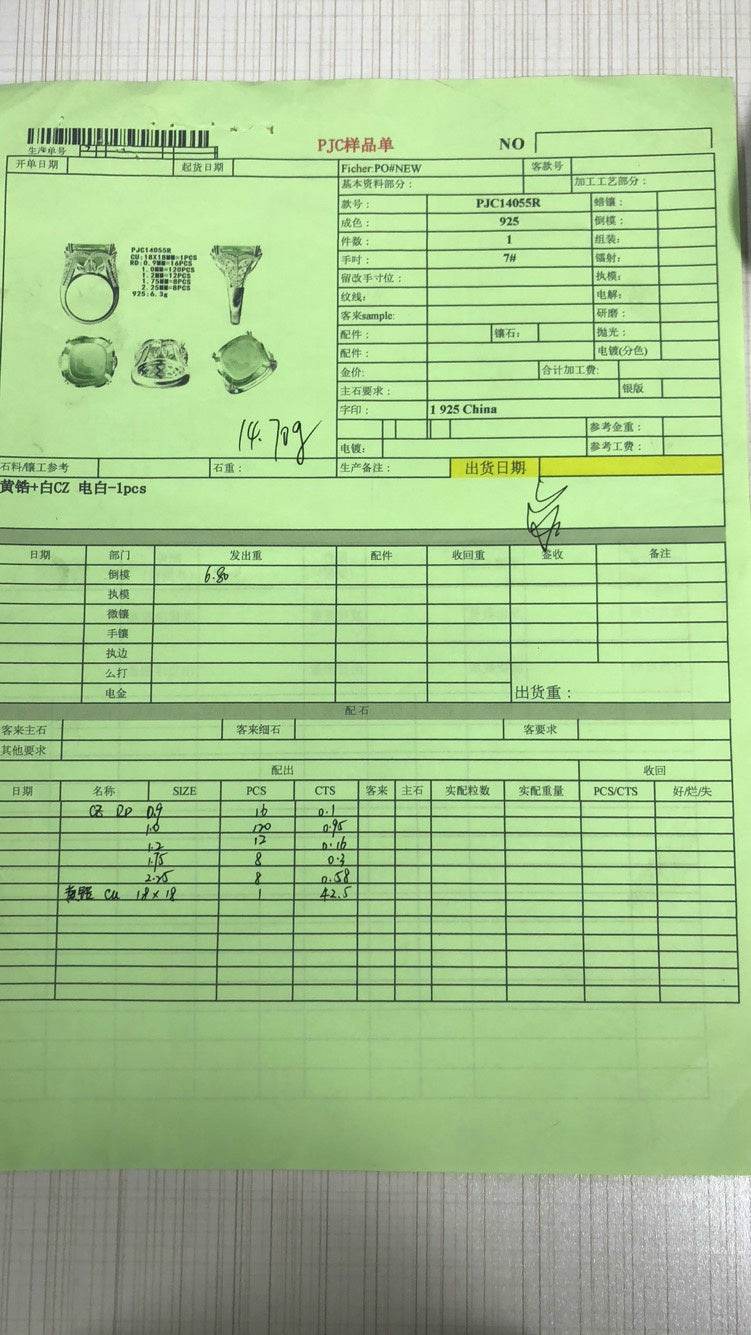 PJC样品单
NO
生产单号
开单日期 起货日期 Ficher:PO#NEW 客款号
基本资料部分： 加工工艺部分：
款号： PJC14055R 蜡镶：
成色： 925 倒模：
件数： 1 组装：
手吋： 7# 镭射：
留改手寸位： 执模：
纹线： 电解：
客来sample: 研磨：
配件： 镶石： 抛光：
配件： 电镀(分色)
金价： 合计加工费：
主石要求： 银版
字印： 1 925 China
参考金重：
电镀： 参考工费：
PJC14055R
CU:18X18MM=1PCS
RD:0.9MM=16PCS
1.0MM=120PCS
1.2MM=12PCS
1.75MM=8PCS
2.25MM=8PCS
925:6.3g
14.70g
石料/镶工参考 石重： 生产备注： 出货日期
黄锆+白CZ 电白-1pcs
日期 部门 发出重 配件 收回重 签收 备注
倒模 6.80
执模
微镶
手镶
执边
么打
电金 出货重：
配石
客来主石 客来细石 客要求
其他要求
配出 收回
日期 名称 SIZE PCS CTS 客来 主石 实配粒数 实配重量 PCS/CTS 好/烂/失
CZ RD 0.9 16 0.1
1.0 120 0.95
1.2 12 0.16
1.75 8 0.3
2.25 8 0.58
黄锆 CU 18×18 1 42.5